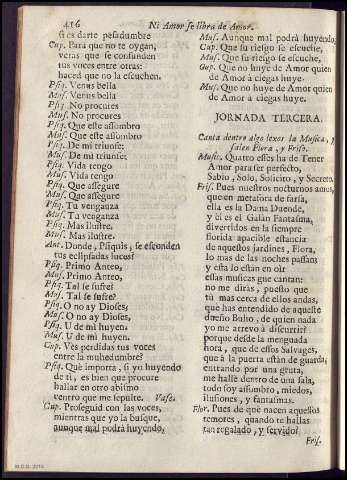 416
Ni Amor se libra de Amor.
si es darte pesadumbre
Cup. Para que no te oygan,
veràs que se confunden
tus voces entre otras:
haced que no la escuchen.
Psiq. Venus bella
Mus. Venus bella
Psiq. No procures
Mus. No procures
Psiq. Que este assombro
Mus. Que este assombro
Psiq. De mi triunfe;
Mus. De mi triunfe;
Psiq. Vida tengo
Mus. Vida tengo
Psiq. Que assegure
Mus. Que assegure
Psiq. Tu venganza
Mus. Tu venganza
Psiq. Mas ilustre.
Mus. Mas ilustre.
Ant. Donde, Psiquis, se esconden
tus eclipsadas luces?
Psiq. Primo Anteo,
Mus. Primo Anteo,
Psiq. Tal se sufre?
Mus. Tal se sufre?
Psiq. O no ay Dioses,
Mus. O no ay Dioses,
Psiq. U de mì huyen.
Mus. U de mì huyen.
Cup. Ves perdidas tus voces
entre la muchedumbre?
Psiq. Què importa, si yo huyendo
de tì, es bien que procure
hallar en otro abismo
centro que me sepulte. Vase.
Cup. Proseguid con las voces,
mientras que yo la busque,
aunque mal podrà huyendo,
Mus. Aunque mal podrà huyendo,
Cup. Que su riesgo se escuche,
Mus. Que su riesgo se escuche,
Cup. Que no huye de Amor quien
de Amor à ciegas huye.
Mus. Que no huye de Amor quien
de Amor à ciegas huye.
JORNADA TERCERA.
Canta dentro algo lexos la Musica, y
salen Flora, y Friso.
Music. Quatro eSSes ha de Tener
Amor para ser perfecto,
Sabio, Solo, Solicito, y Secreto.
Fris. Pues nuestros nocturnos amos,
quien en metafora de farsa,
ella es la Dama Duende,
y èl es el Galàn Fantasma,
divertidos en la siempre
florida apacible estancia
de aquestos jardines, Flora,
lo mas de las noches passan;
y esta lo estàn en oir
essas musicas que cantan:
no me diràs, puesto que
tù mas cerca de ellos andas,
que has entendido de aqueste
dueño Buho, de quien nada
yo me atrevo à discurrir?
porque desde la menguada
hora, que de essos Salvages,
que à la puerta estàn de guarda,
entrando por una gruta,
me hallè dentro de una sala,
todo soy assombro, miedos,
ilusiones, y fantasmas.
Flor. Pues de què nacen aquessos
temores, quando te hallas
tan regalado, y servido?
Fris.